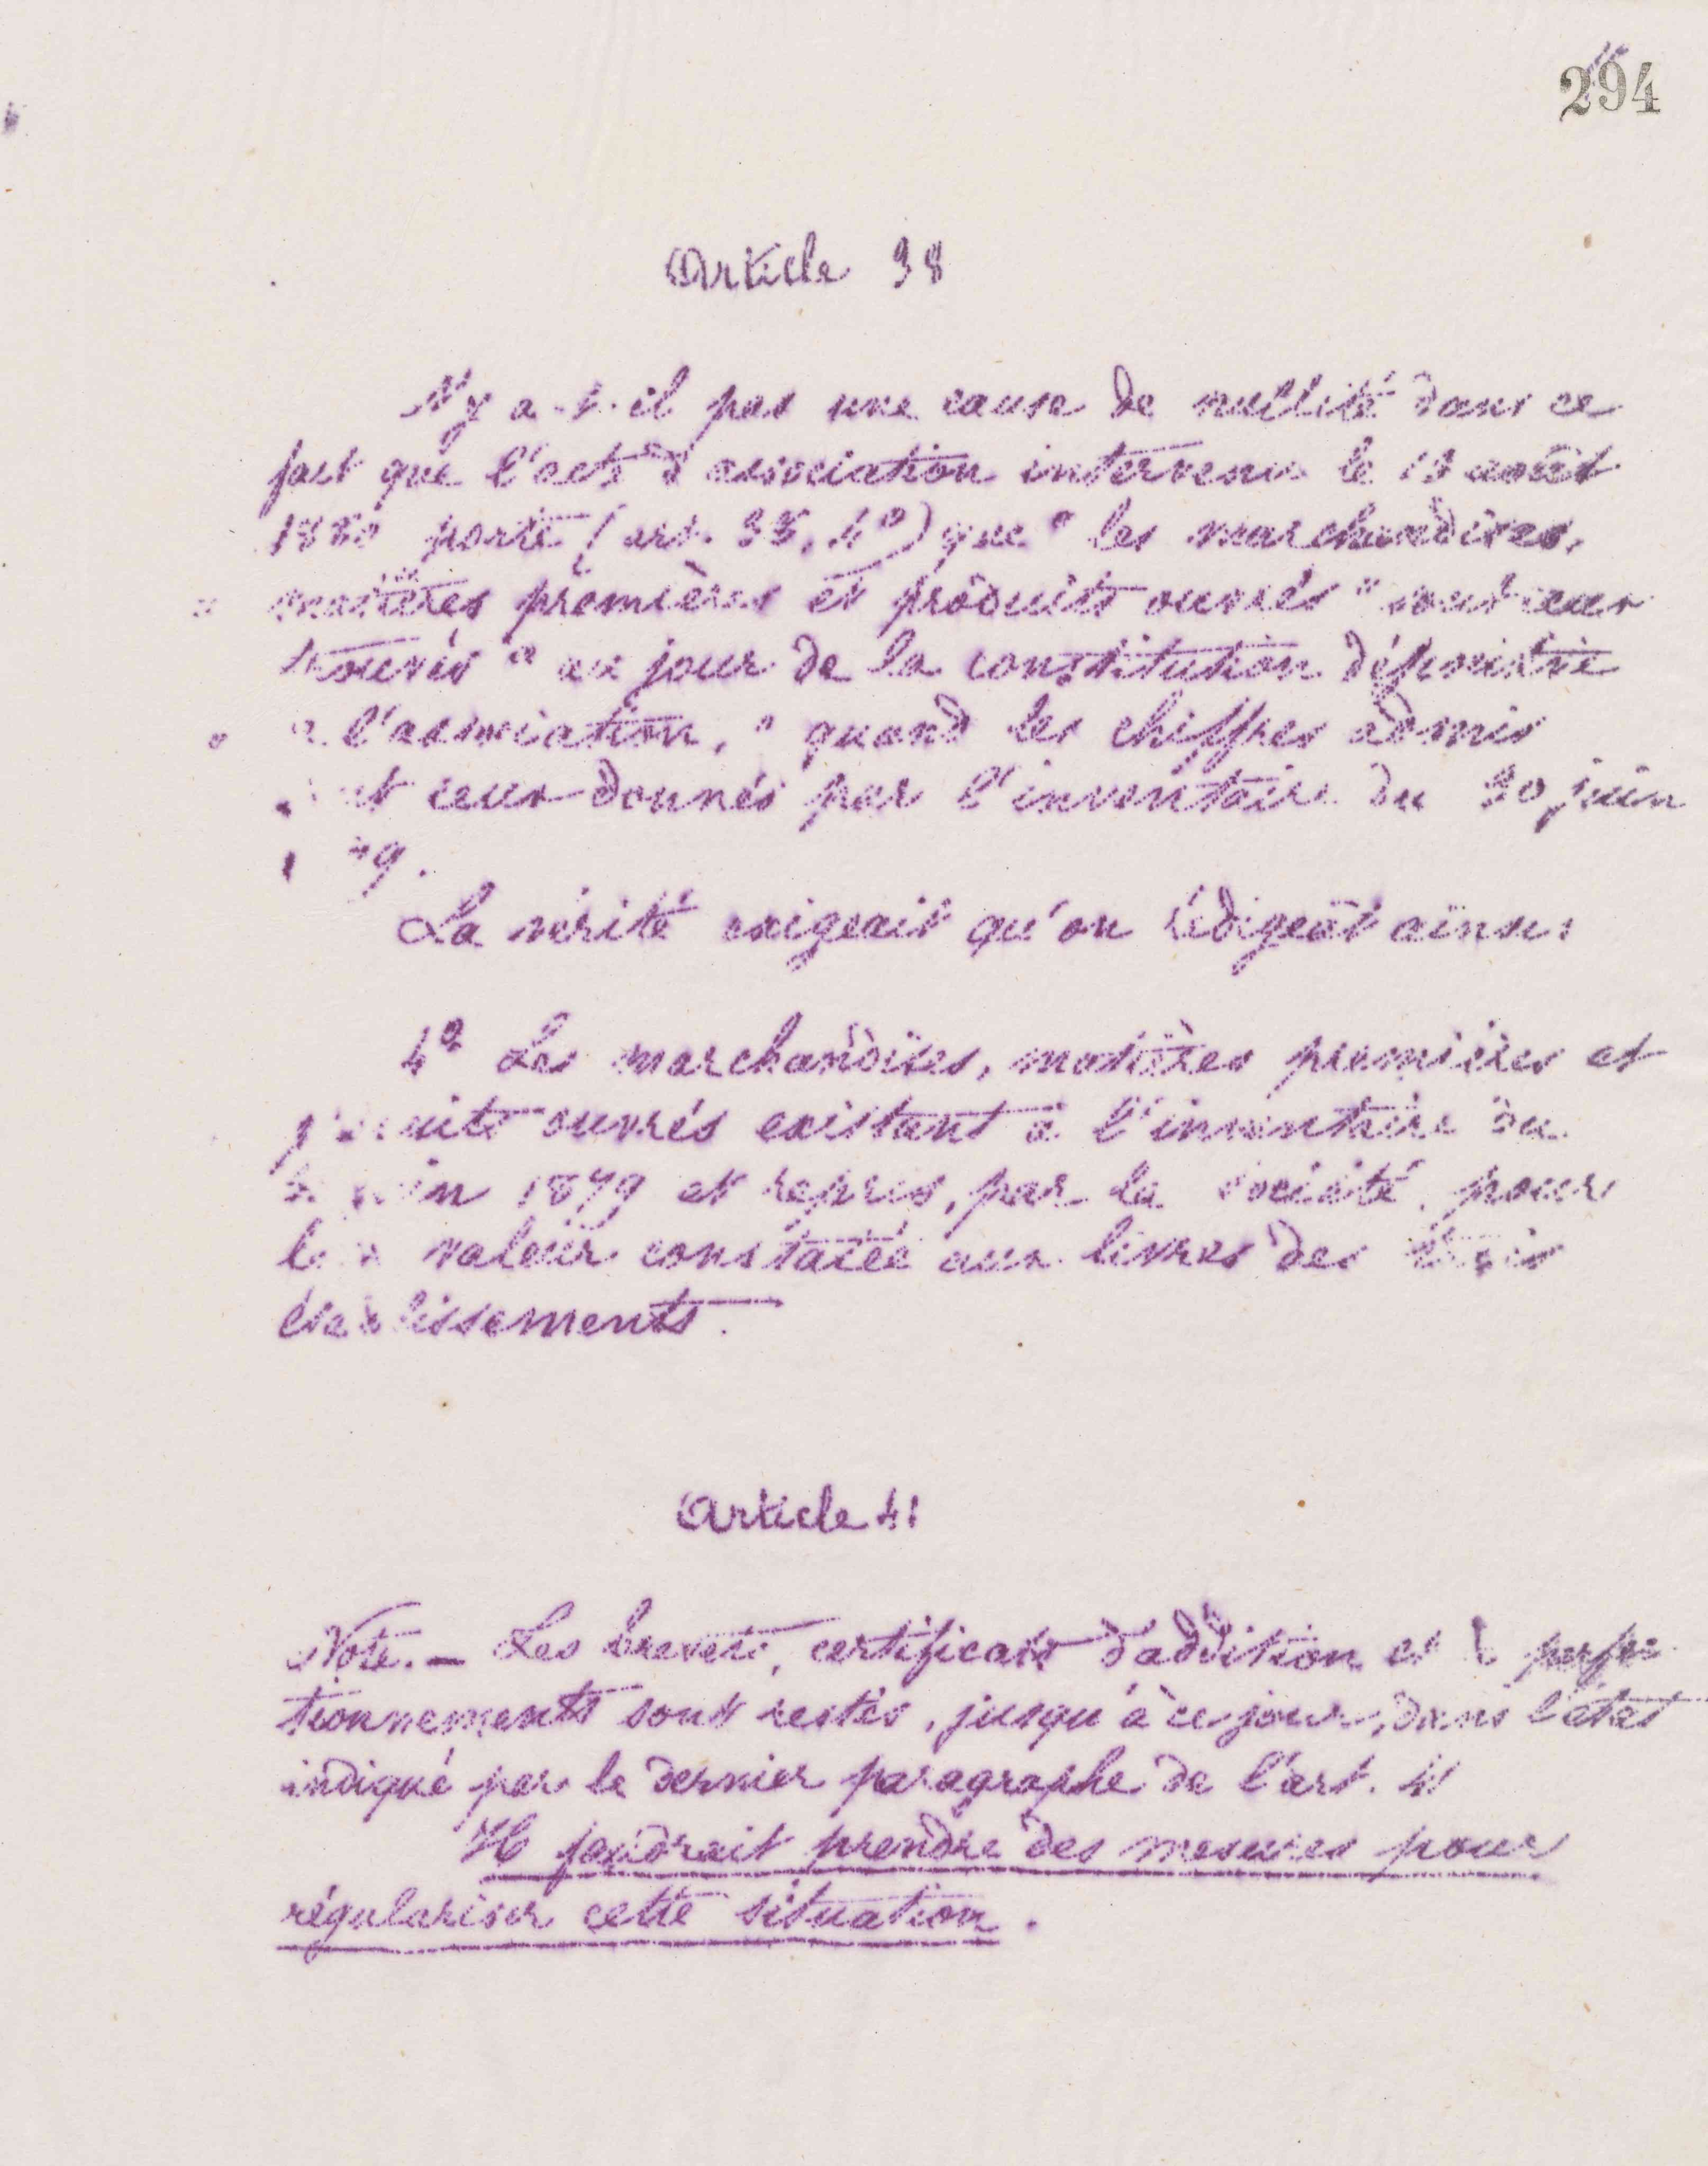 294
Article 38
N'y a-t-il pas une cause de nullité dans ce
fait que l'acte d'association intervenu le 13 août
1880 porte (art. 38, 4°) que " les marchandises,
" matières premières et produits ouvrés " sont ceux
trouvés " au jour de la constitution définitive
" l'association, " quand les chiffres admis
ceux donnés par l'inventaire du 30 juin
La vérité exigeait qu'on rédigeât ainsi
4° Les marchandises, matières premières et
ouvrés existant à l'inventaire du
1879 et repris, par la société, pour
valeur constatée aux livres des
établissements.
Article 41
Note. – Les brevets, certificats d'addition et
tionnements sont restés, jusqu'à ce jour, dans l'état
indiqué par le dernier paragraphe de l'art. 41
Il faudrait prendre des mesures pour
régulariser cette situation.